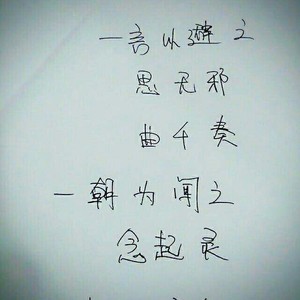 一言以避之
思无邪
曲千奏
一朝为闻之
念起灵